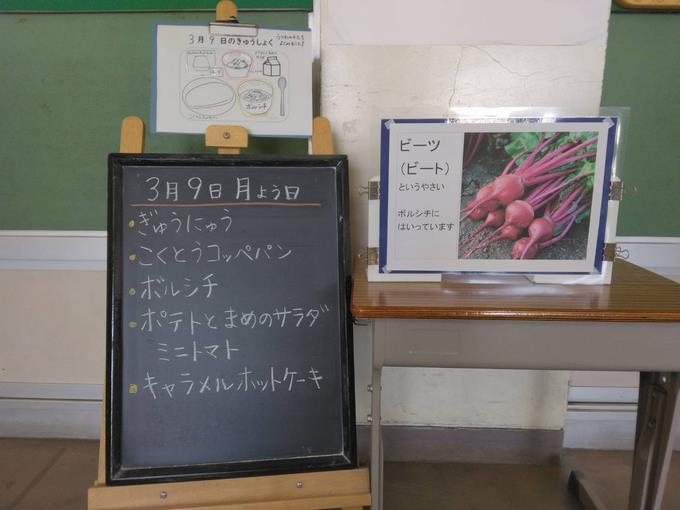 3月9日のきゅうしょく
ボルシチ
3月9日月よう日
ぎゅうにゅう
こくとうコッペパン
ボルシチ
ポテトとまめのサラダ
ミニトマト
キャラメルホットケーキ
ビーツ
（ビート）
というやさい
ボルシチに
はいっています